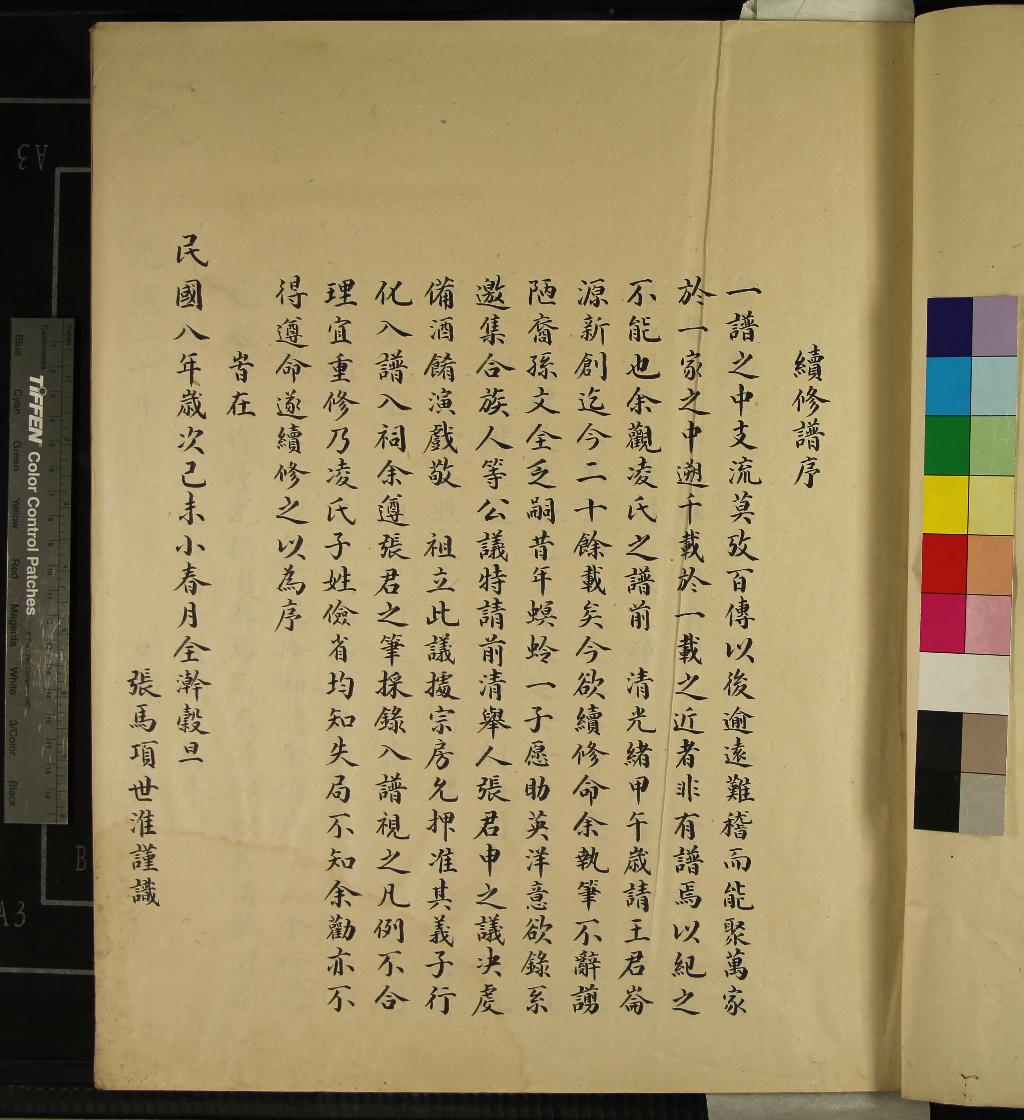 續修譜序
一譜之中支流莫攷百傳以後逾遠難稽而能聚萬家
於一家之中遡千載於一載之近者非有譜焉以紀之
不能也余觀凌氏之譜前 清光緒甲午歲請王君崙
源新創迄今二十餘載矣今欲續修命余執筆不辭謭
陋裔孫文全乏嗣昔年螟蛉一子愿助英洋意欲錄系
邀集合族人等公議特請前清舉人張君申之議決處
備酒餚演戲敬 祖立此議據宗房允押准其義子行
化入譜入祠余遵張君之筆採錄入譜視之凡例不合
理宜重修乃凌氏子姓儉省均知失局不知余勸亦不
得遵命遂續修之以為序
旹在
民國八年歲次己未小春月全澣穀旦
張馬項世淮謹識
TIFFEN Color Control Patches
Blue Cyan Green Yellow Red Magenta White 3/Color Black
A3
B
A3